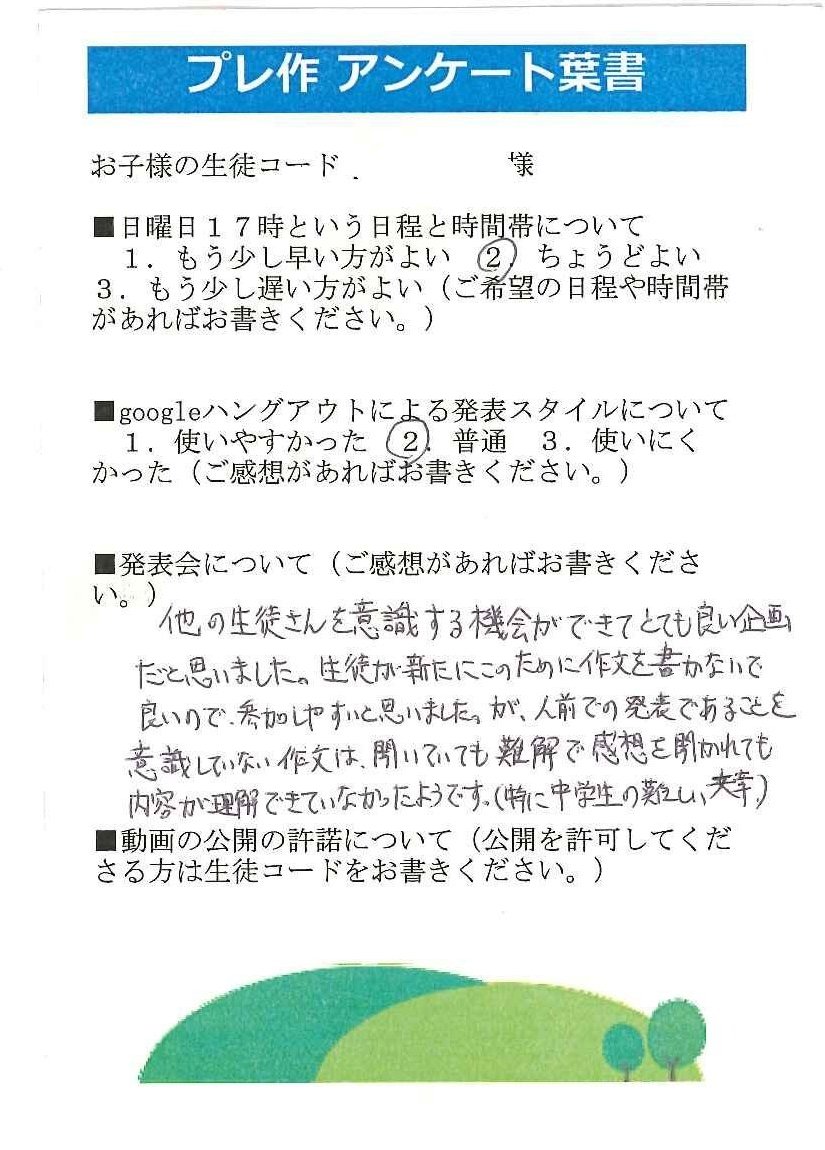 プレ作 アンケート葉書
お子様の生徒コード . 様
■日曜日１７時という日程と時間帯について
１．もう少し早い方がよい ２．ちょうどよい
３．もう少し遅い方がよい（ご希望の日程や時間帯
があればお書きください。）
■googleハングアウトによる発表スタイルについて
１．使いやすかった ２．普通 ３．使いにく
かった（ご感想があればお書きください。）
■発表会について（ご感想があればお書きくださ
い。）
他の生徒さんを意識する機会ができてとても良い企画
だと思いました。生徒が新たにこのために作文を書かないで
良いので、参加しやすいと思いました。が、人前での発表であることを
意識していない作文は、聞いていても難解で感想を聞かれても
内容が理解できていなかったようです。(特に中学生の難しい文章)
■動画の公開の許諾について（公開を許可してくだ
さる方は生徒コードをお書きください。）